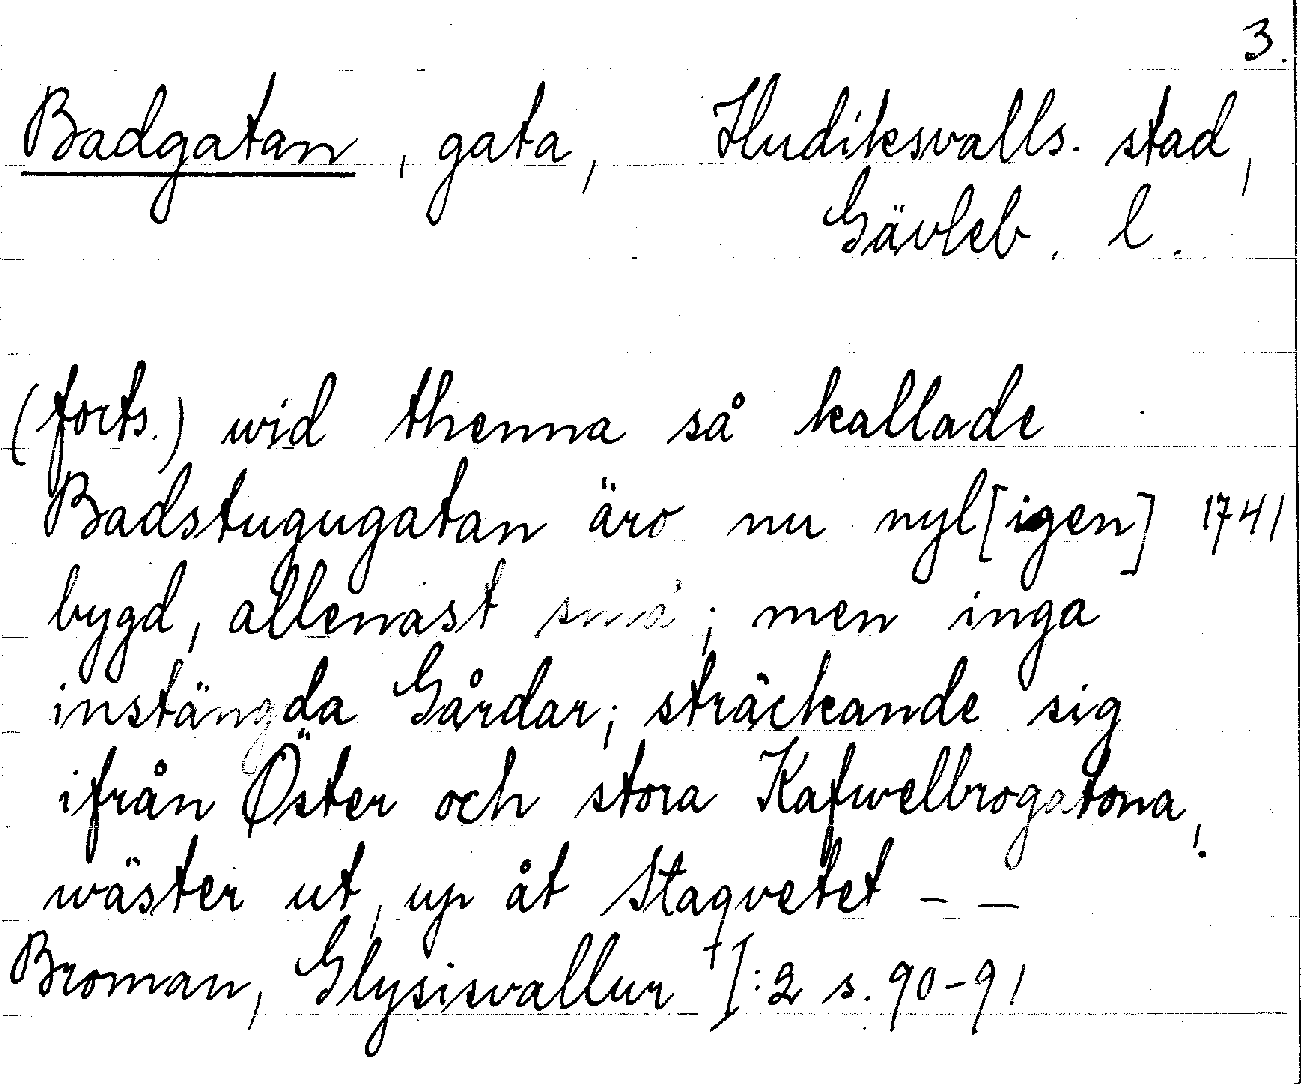 3.
Badgatan, gata, Hudiksvalls. stad,
Gävleb. l.
(forts.) wid thenna så kallade
Badstugugatan äro nu nyl[igen] 1741
bygd, allenast små; men inga
instängda Gårdar; sträckande sig
ifrån Öster och stora Kafwelbrogatona,
wäster ut, up åt Staqvetet - -
Broman, Glysisvallur I:2 s. 90-91